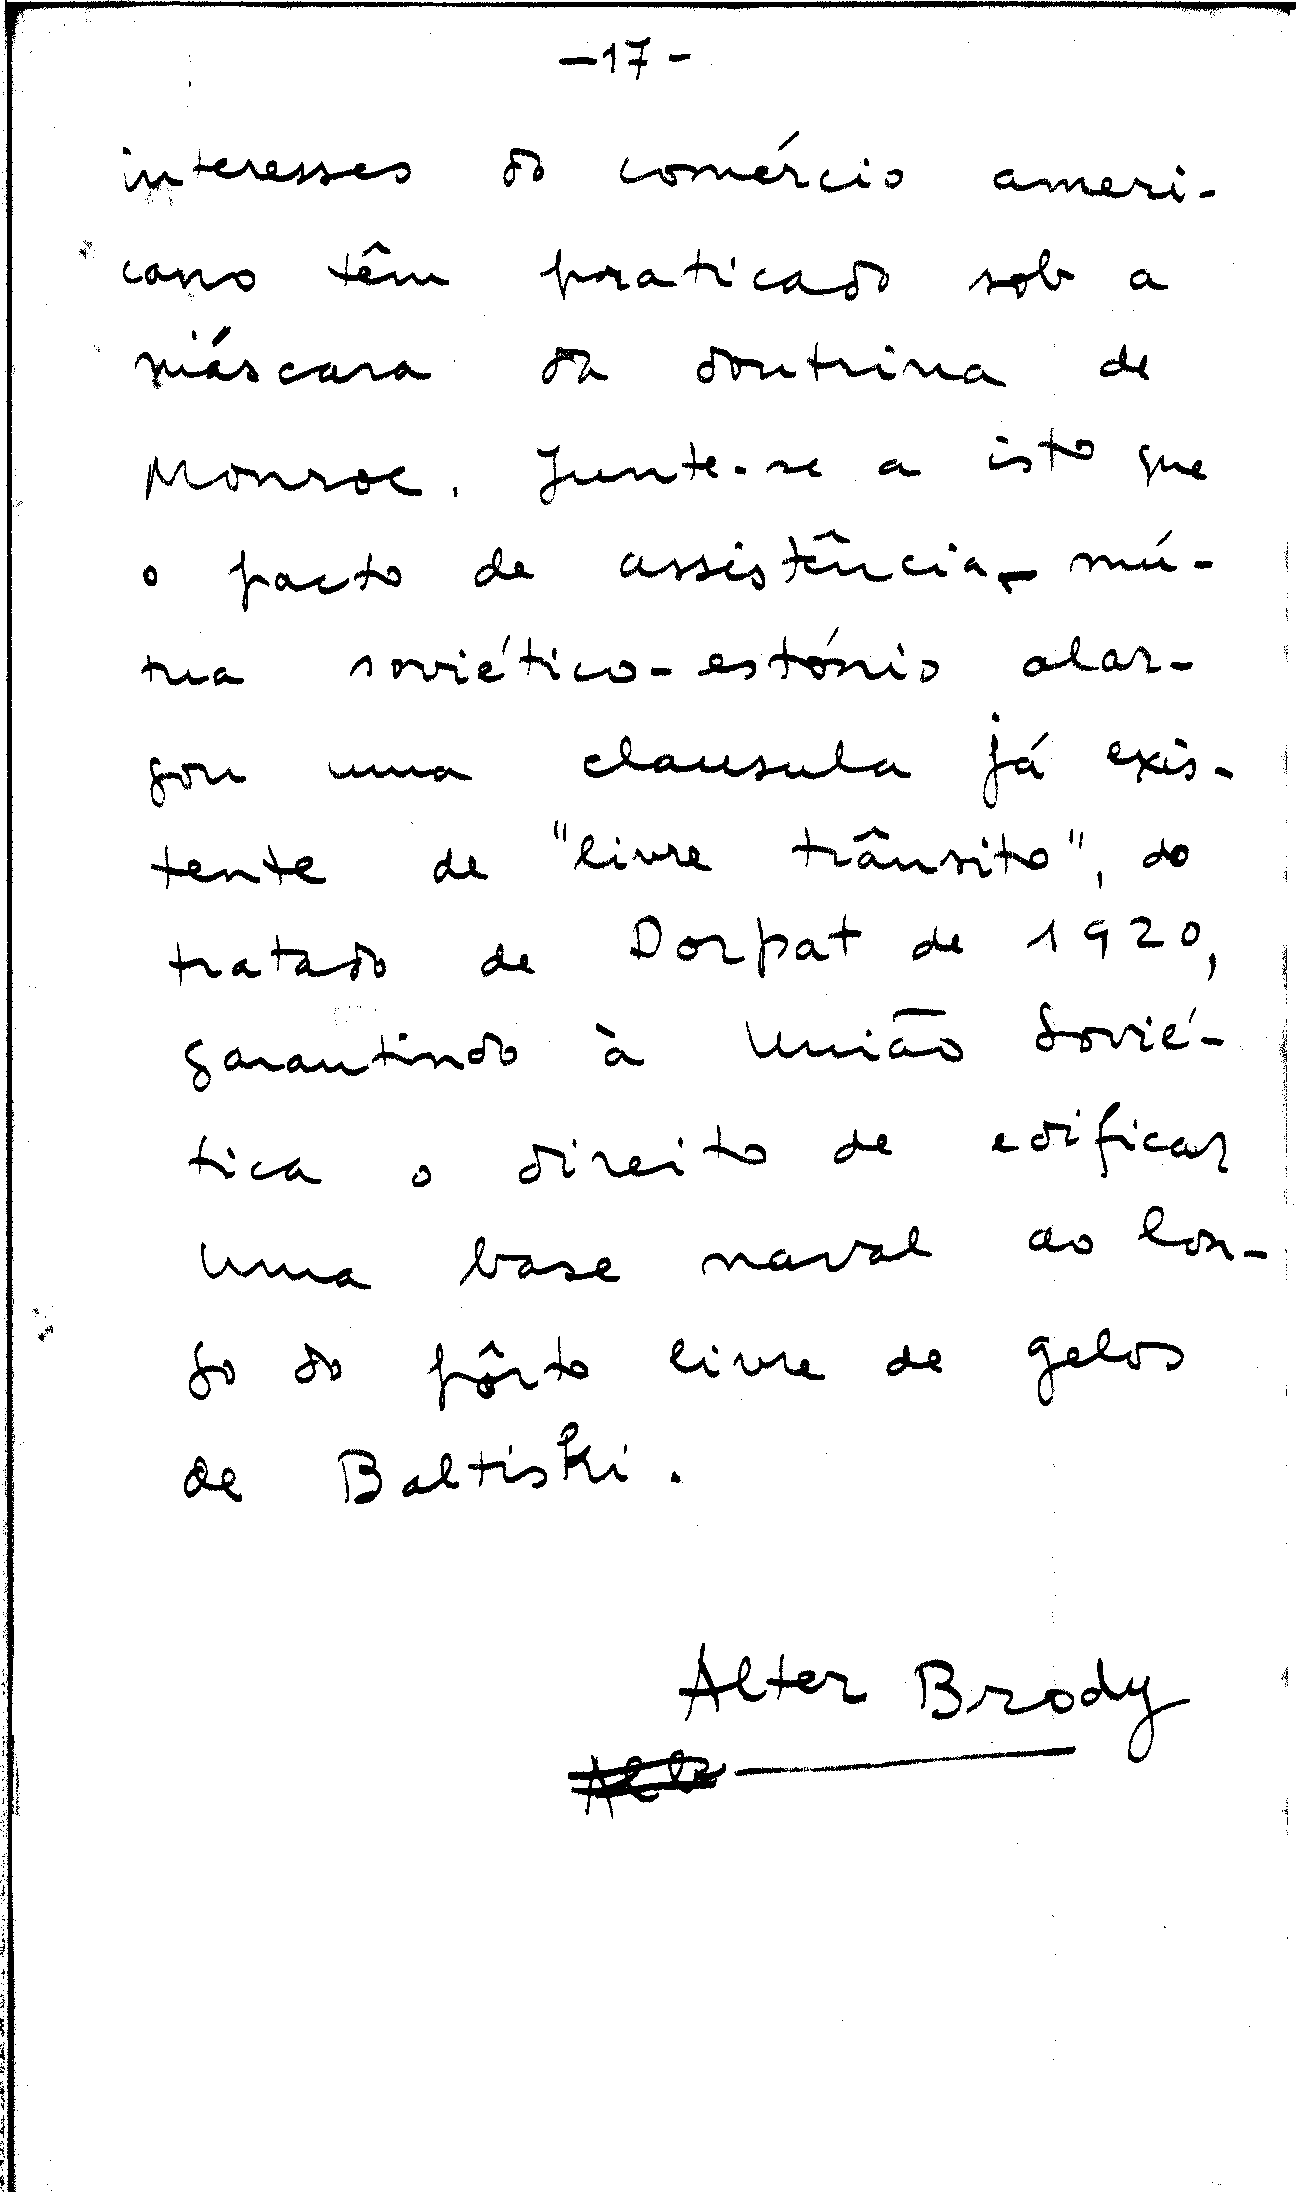 -17-
interesses do comércio ameri-
cano têm praticado sob a
máscara da doutrina de
Monroe. Junte-se a isto que
o pacto de assistência-mú-
tua soviético-estónio alar-
gou uma clausula já exis-
tente de "livre trânsito", do
tratado de Dorpat de 1920,
garantindo à União Sovié-
tica o direito de edificar
uma base naval ao lon-
go do pôrto livre de gelos
de Baltiski.
Alter Brody